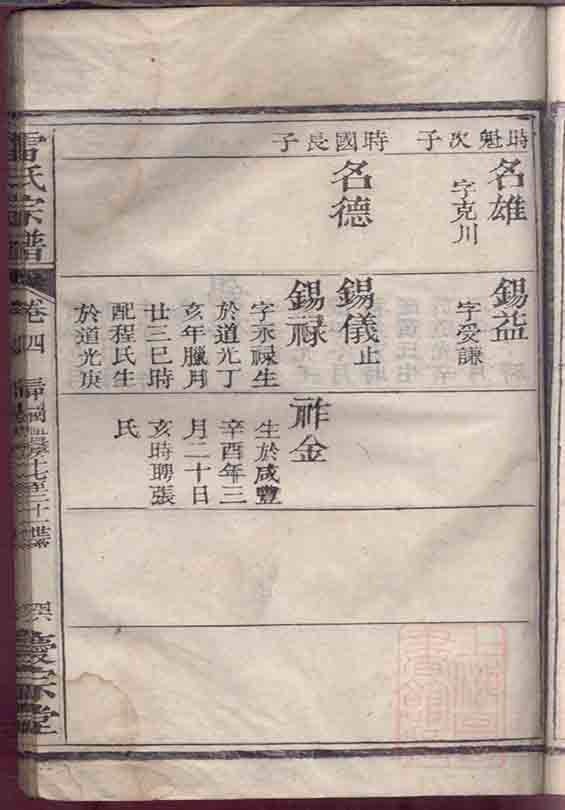 時魁次子
名雄
字克川
時國長子
名德
錫益
字受謙
錫儀止
錫祿
字永祿生
於道光丁
亥年臘月
廿三巳時
配程氏生
於道光庚
祚金
生於咸豐
辛酉年三
月二十日
亥時聘張
氏
雷氏宗譜
卷四